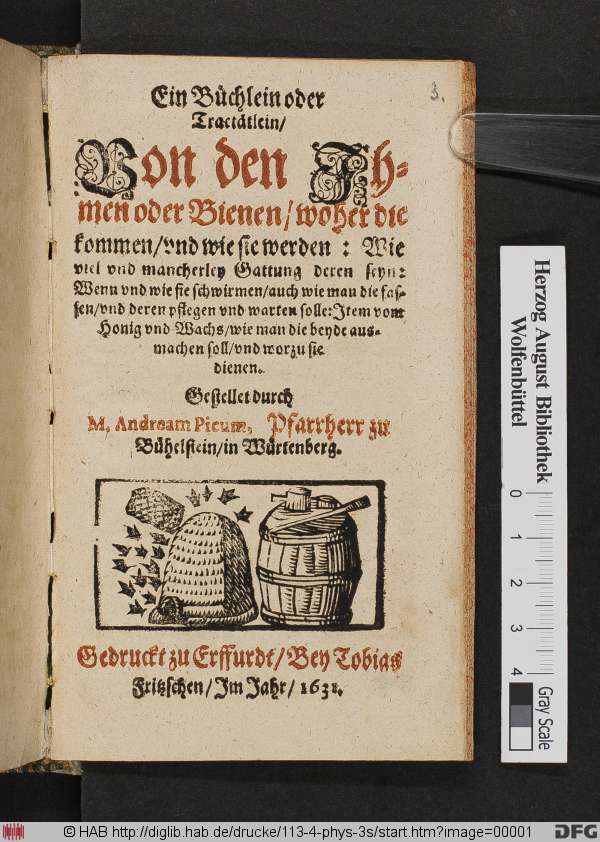 3.
Ein Büchlein oder
Tractätlein/
Von den Ih-
men oder Bienen/woher die
kommen/vnd wie sie werden: Wie
viel vnd mancherley Gattung deren seyn:
Wenn vnd wie sie schwirmen/auch wie man die fas-
sen/vnd deren pflegen vnd warten solle: Item vom
Honig vnd Wachs/wie man die beyde aus-
machen soll/vnd worzu sie
dienen.
Gestellet durch
M. Andream Picum, Pfarrherr zu
Bühelstein/in Würtenberg.
Gedruckt zu Erffurdt/Bey Tobias
Fritzschen/Im Jahr/1631.
Herzog August Bibliothek
Wolfenbüttel
0
1
2
3
4
Gray Scale
© HAB http://diglib.hab.de/drucke/113-4-phys-3s/start.htm?image=00001
DFG